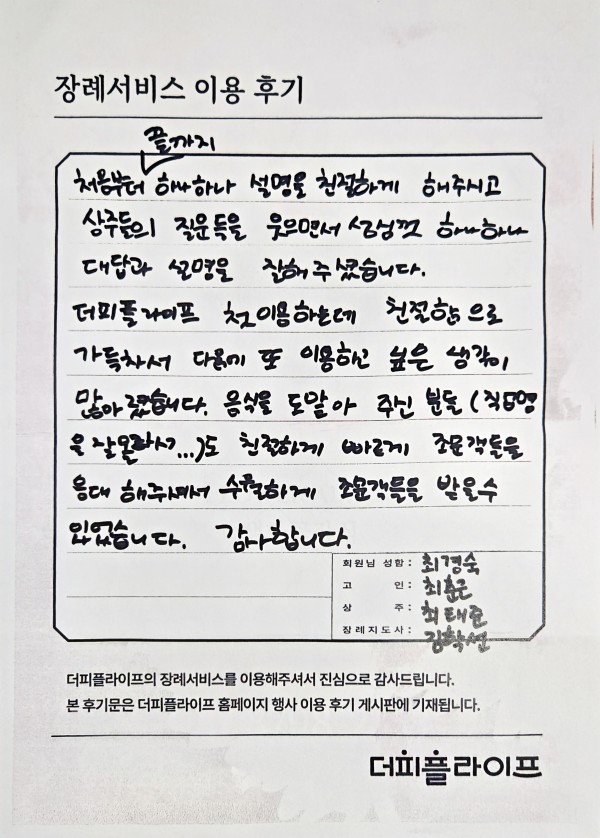 장례서비스 이용 후기
끝까지
처음부터 하나하나 설명을 친절하게 해주시고
상주들의 질문득을 웃으면서 성심껏 하나하나
대답과 설명을 잘해주셨습니다.
더피플라이프 첫이용하는데 친절함으로
가득차서 다음에 또 이용하고 싶은 생각이
많아졌습니다. 음식을 도맡아 주신 분들 (직업명
을 잘몰라서...)도 친절하게 빠르게 조문객들을
응대 해주셔서 수월하게 조문객들을 받을수
있었습니다. 감사합니다.
회원님 성함: 최경숙
고 인: 최춘근
상 주: 최태준
장례지도사: 김학선
더피플라이프의 장례서비스를 이용해주셔서 진심으로 감사드립니다.
본 후기문은 더피플라이프 홈페이지 행사 이용 후기 게시판에 기재됩니다.
더피플라이프